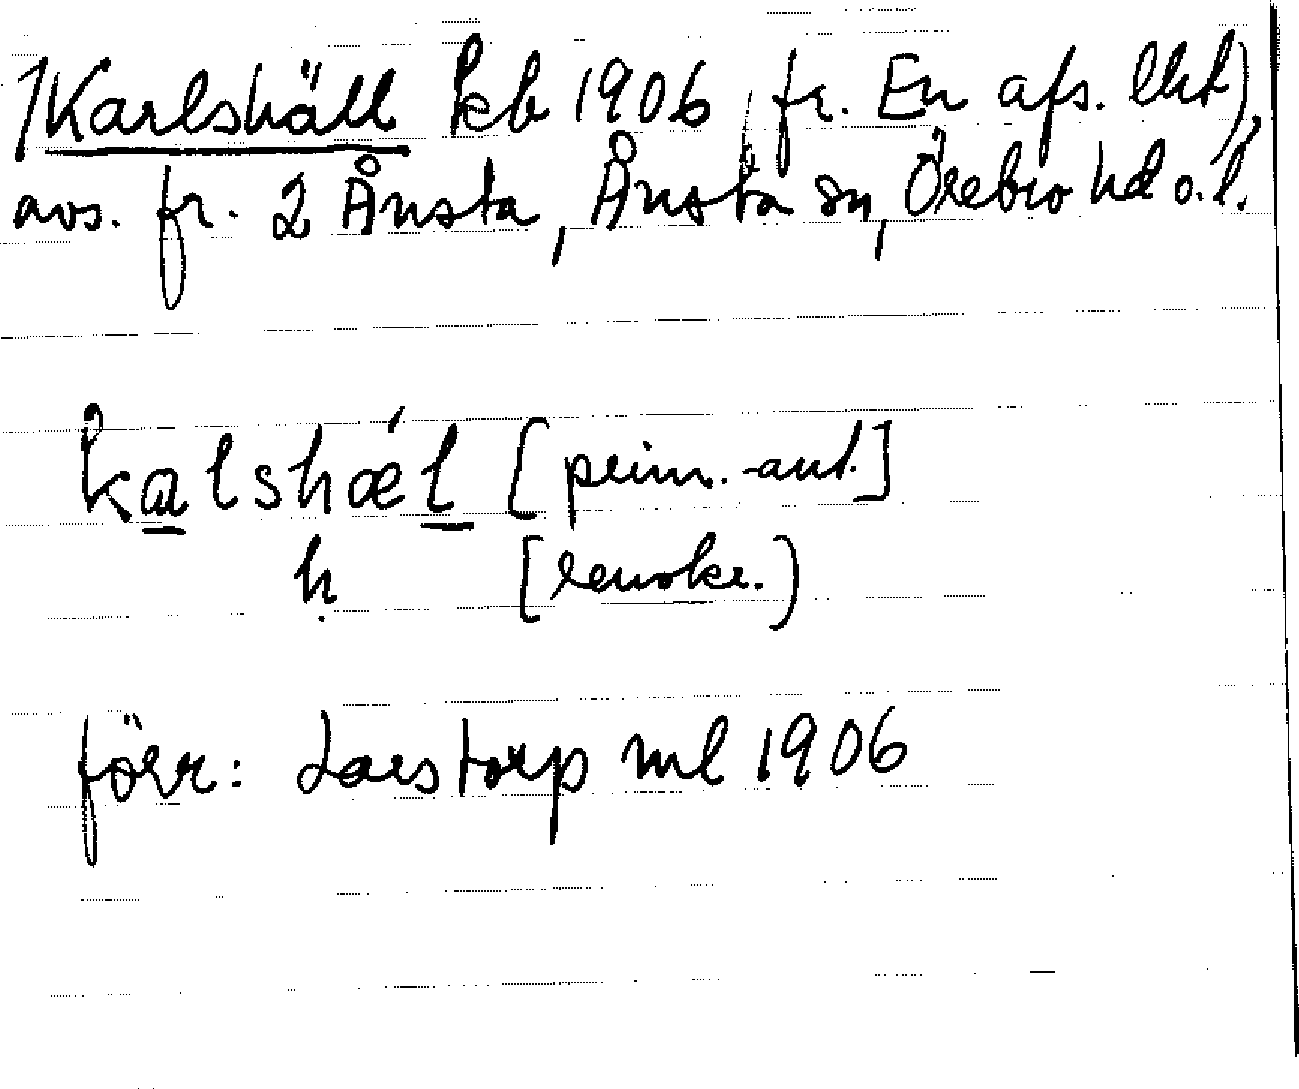 1 Karlshäll kb 1906, fr. En afs. lht),
avs. fr. 2 Ånsta, Ånsta sn, Örebro hd o.l.
kalshæ´l [prim.-ant.]
h [ )
förr: Larstorp ml 1906